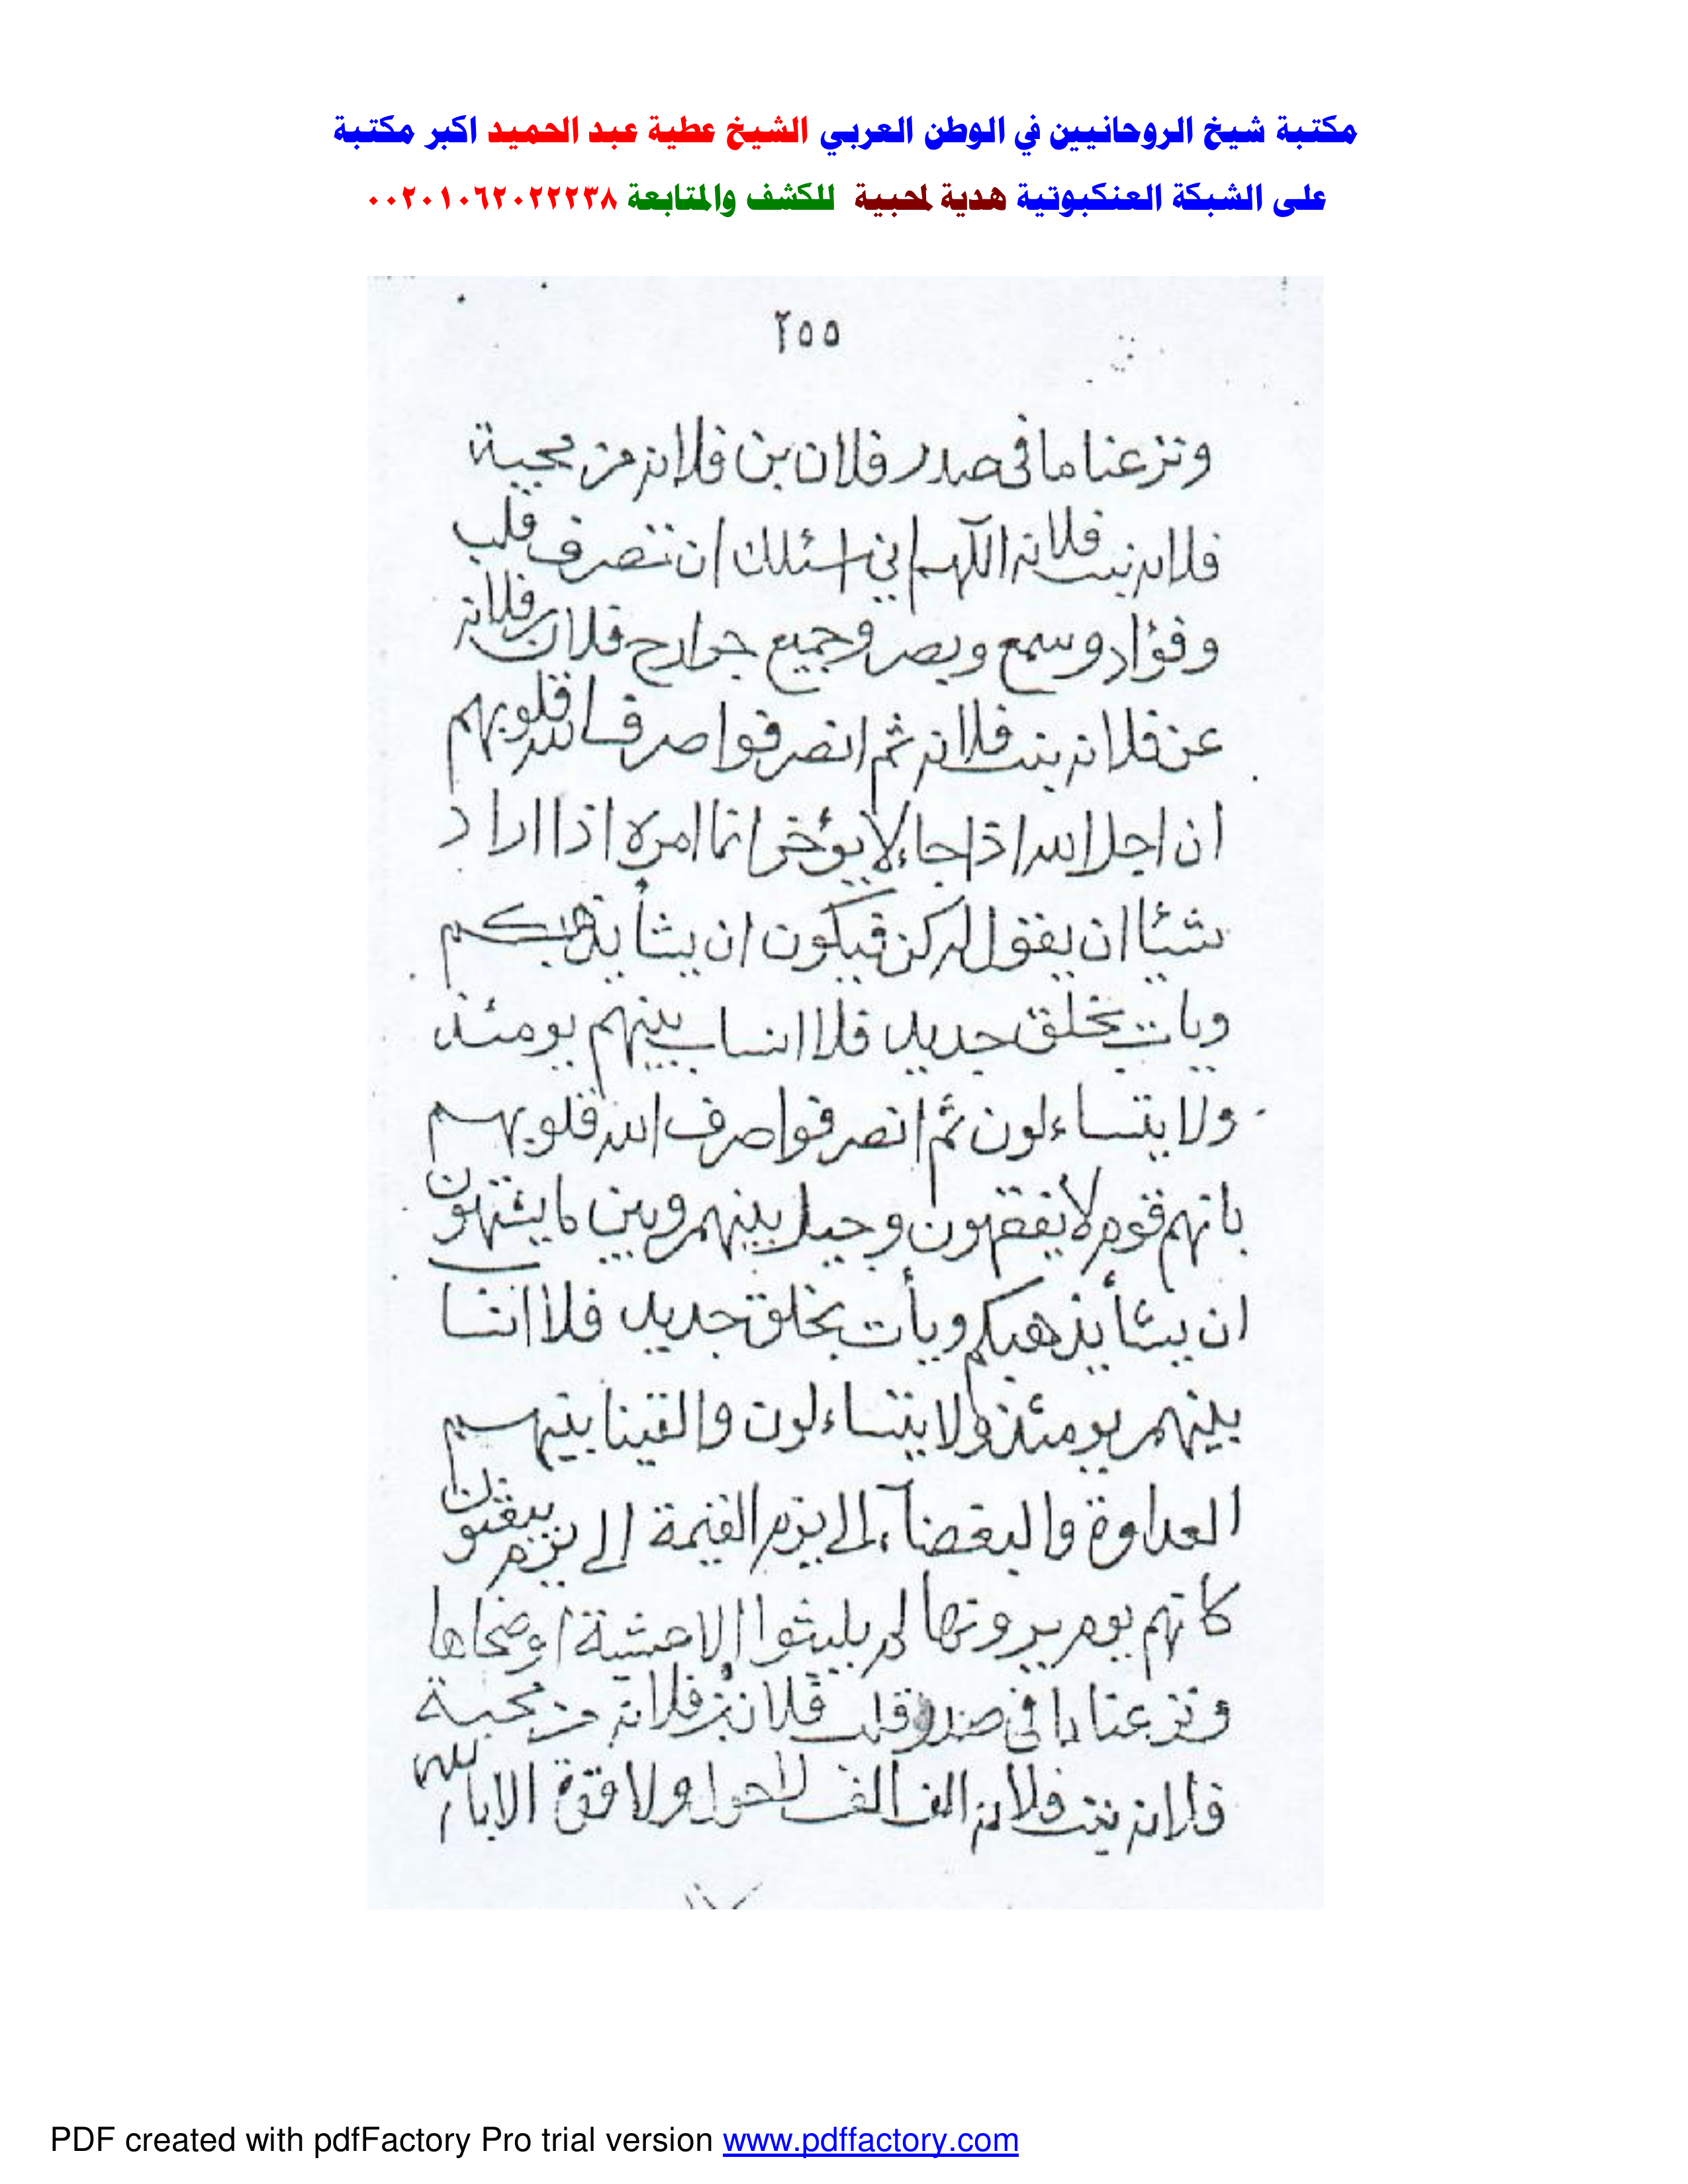 مكتبة شيخ الروحانيين في الوطن العربي الشيخ عطية عبد الحميد اكبر مكتبة
على الشبكة العنكبوتية هدية لمحبية للكشف والمتابعة ٠٠٢٠١٠٦٢٠٢٢٢٣٨
٢٥٥
ونزعنا ما فى صدر فلان بن فلانه من محبية
فلانه بنت فلانه اللهم اني اسئلك ان تصرف قلب
وفؤاد وسمع وبصر وجميع جوارح فلان بن فلانه
عن فلانه بنت فلانه ثم انصرفوا صرف الله قلوبهم
ان اجل الله اذا جاء لا يؤخر انما امره اذا اراد
شيئا ان يقول له كن فيكون ان يشأ يذهبكم
ويات بخلق جديد فلا انساب بينهم يومئذ
ولا يتساءلون ثم انصرفوا صرف الله قلوبهم
بانهم قوم لا يفقهون وحيل بينهم وبين ما يشتهون
ان يشأ يذهبكم ويأت بخلق جديد فلا انسا
بينهم يومئذ ولا يتساءلون والقينا بينهم
العداوة والبغضاء الى يوم القيمة الى يوم يبعثون
كانهم يوم يرونها لم يلبثوا الا عشية اوضحاها
ونزعنا ما فى صدر وقلب فلان بن فلانه من محبية
فلانه بنت فلانه الف الف لاحول ولا قوة الا بالله
PDF created with pdfFactory Pro trial version www.pdffactory.com